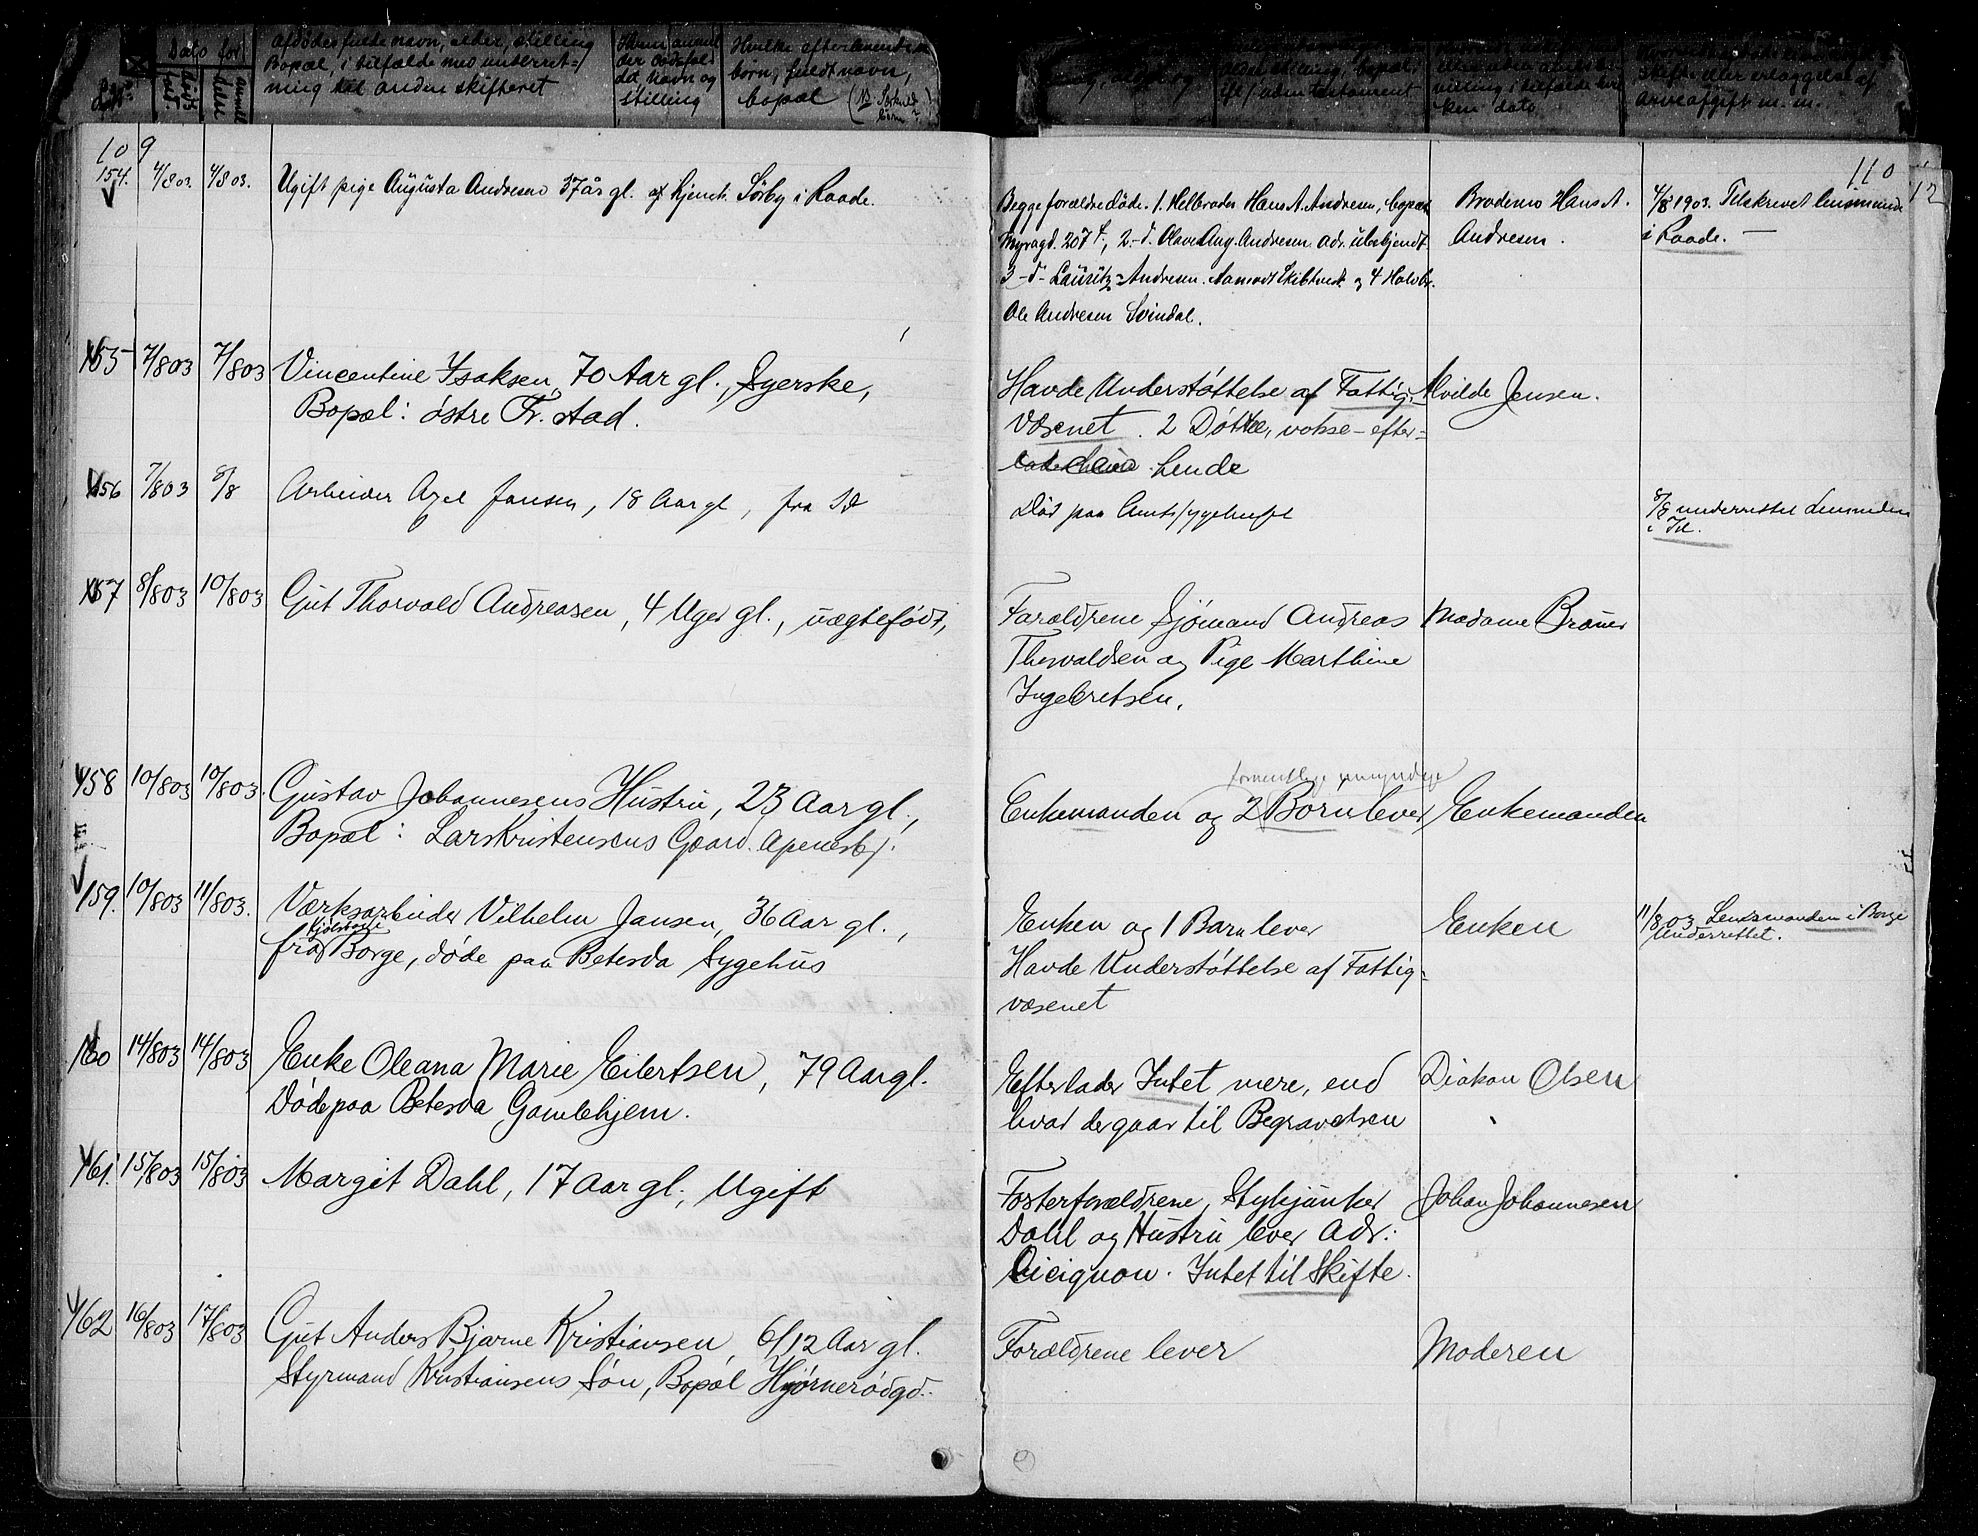 Dato for
Afdødes fulde navn, alder, stilling
Bopæl, i tilfælde med underret-
ning til anden skifteret
stilling
Hvilke efterlevende
børn, fuldt navn,
bopæl
109
110
154. 4/8 03. 4/8 03. Ugift pige Augusta Andresen 37 år gl. af hjemst. Sörby i Raade.
Begge forældre døde. 1. Helbroder Hans A. Andresen, bopæl
Myragd. 207 4., 2.-d. Olave Aug. Andresen adr. ubekjendt
3 -d- Lauritz Andresen. Aamodt Skibtvedt og 4 Halvbr.
Ole Andresen Svindal.
Broderen Hans A.
Andresen.
4/8 1903. Tilskrevet lensmand
i Raade. —
155 7/803 7/803 Vincentine Isaksen, 70 Aar gl., Syerske,
Bopæl: østre Fr.stad.
Havde Understøttelse af Fattig-
væsenet. 2 Døttre, vokse - efter-
lende
Alvilde Jensen.
156 7/803 8/8 Arbeider Axel Jansen, 18 Aar gl, fra Id
Død paa Amtssygehuset
8/8 underrettet Lensmanden
i Id.
157 8/803 10/803 Gut Thorvald Andreasen, 4 Uger gl., uægtefødt,
Forældrene Sjømand Andreas
Thorvaldsen og Pige Marthine
Ingebretsen.
Madame Bräuer
158 10/803 10/803. Gustav Johannesens Hustru, 23 Aar gl.,
Bopæl: Lars Kristensens Gaard. Apenesbj.
formentlige umyndige
Enkemanden og 2 Börn lever
Enkemanden
159. 10/803 11/803. Værksarbeider Vilhelm Jansen, 36 Aar gl.,
fra Borge, døde paa Betesda Sygehus
Enken og 1 Barn lever
Havde Understøttelse af Fattig-
væsenet
Enken
11/803 Lensmanden i Borge
Underrettet.
160 14/803 14/803 Enke Oleana Marie Eilertsen, 79 Aar gl.
Døde paa Betesda Gamlehjem.
Efterlader Intet mere, end
hvad der gaar til Begravelsen
Diakon Olsen
161. 15/803 15/803 Margit Dahl, 17 Aar gl., Ugift
Fosterforældrene, Stykjunker
Dahl og Hustru lever Adr.:
Cicignon. Intet til Skifte.
Johan Johannesen
162 16/803 17/803 Gut Anders Bjarne Kristiansen, 6/12 Aar gl.
Styrmand Kristiansens Søn, Bopæl Hjørnerødgd.
Forældrene lever
Moderen